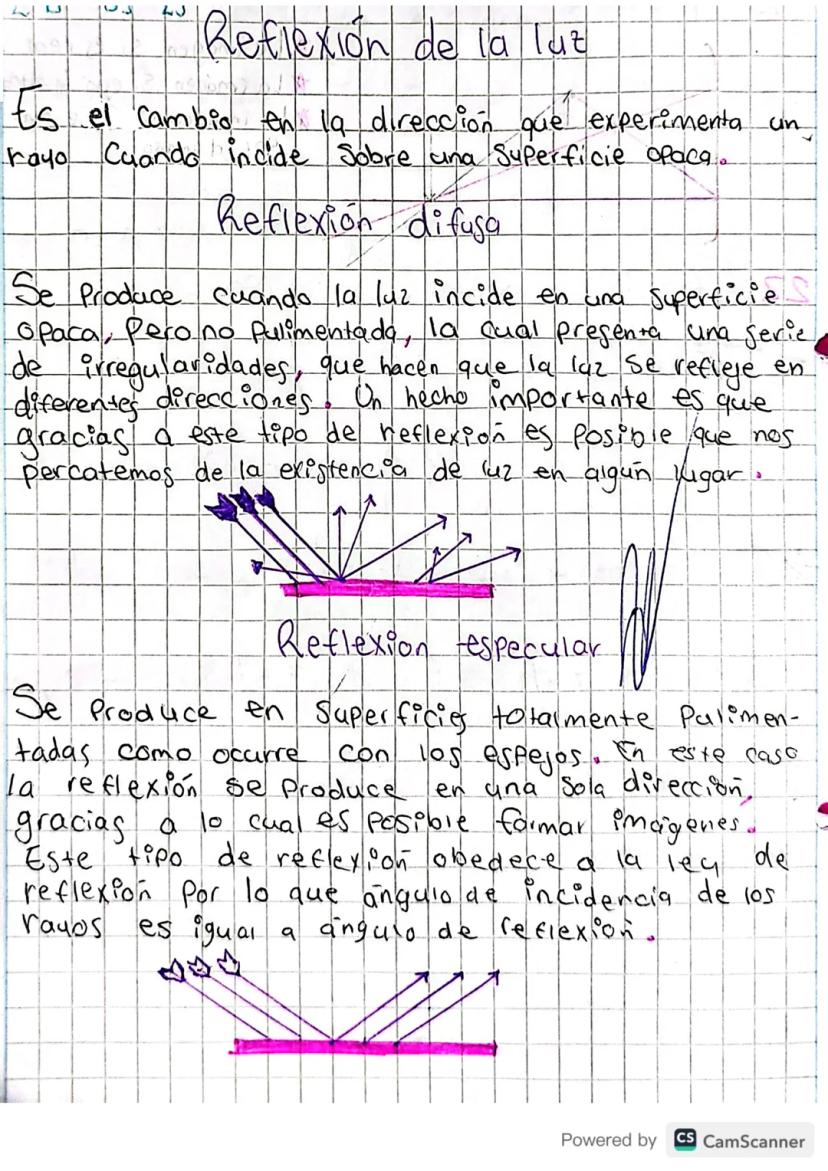 Reflexión de la luz
Es el cambio en la dirección que experimenta un
rayo cuando incide sobre una superficie opaca.
Reflexión difusa
Se produce cuando la luz incide en una superficie
opaca, pero no pulimentada, la cual presenta una serie
de irregularidades, que hacen que la luz se refleje en
diferentes direcciones. Un hecho importante es que
gracias a este tipo de reflexión es posible que nos
percatemos de la existencia de luz en algún lugar.
Reflexion especular
Se produce en superficies totalmente pulimen-
tadas como ocurre con los espejos. En este caso
la reflexión se produce en una sola dirección,
gracias a lo cual es posible formar imágenes.
Este tipo de reflexión obedece a la ley de
reflexión por lo que ángulo de incidencia de los
rayos es igual a ángulo de reflexión.
Powered by CS CamScanner